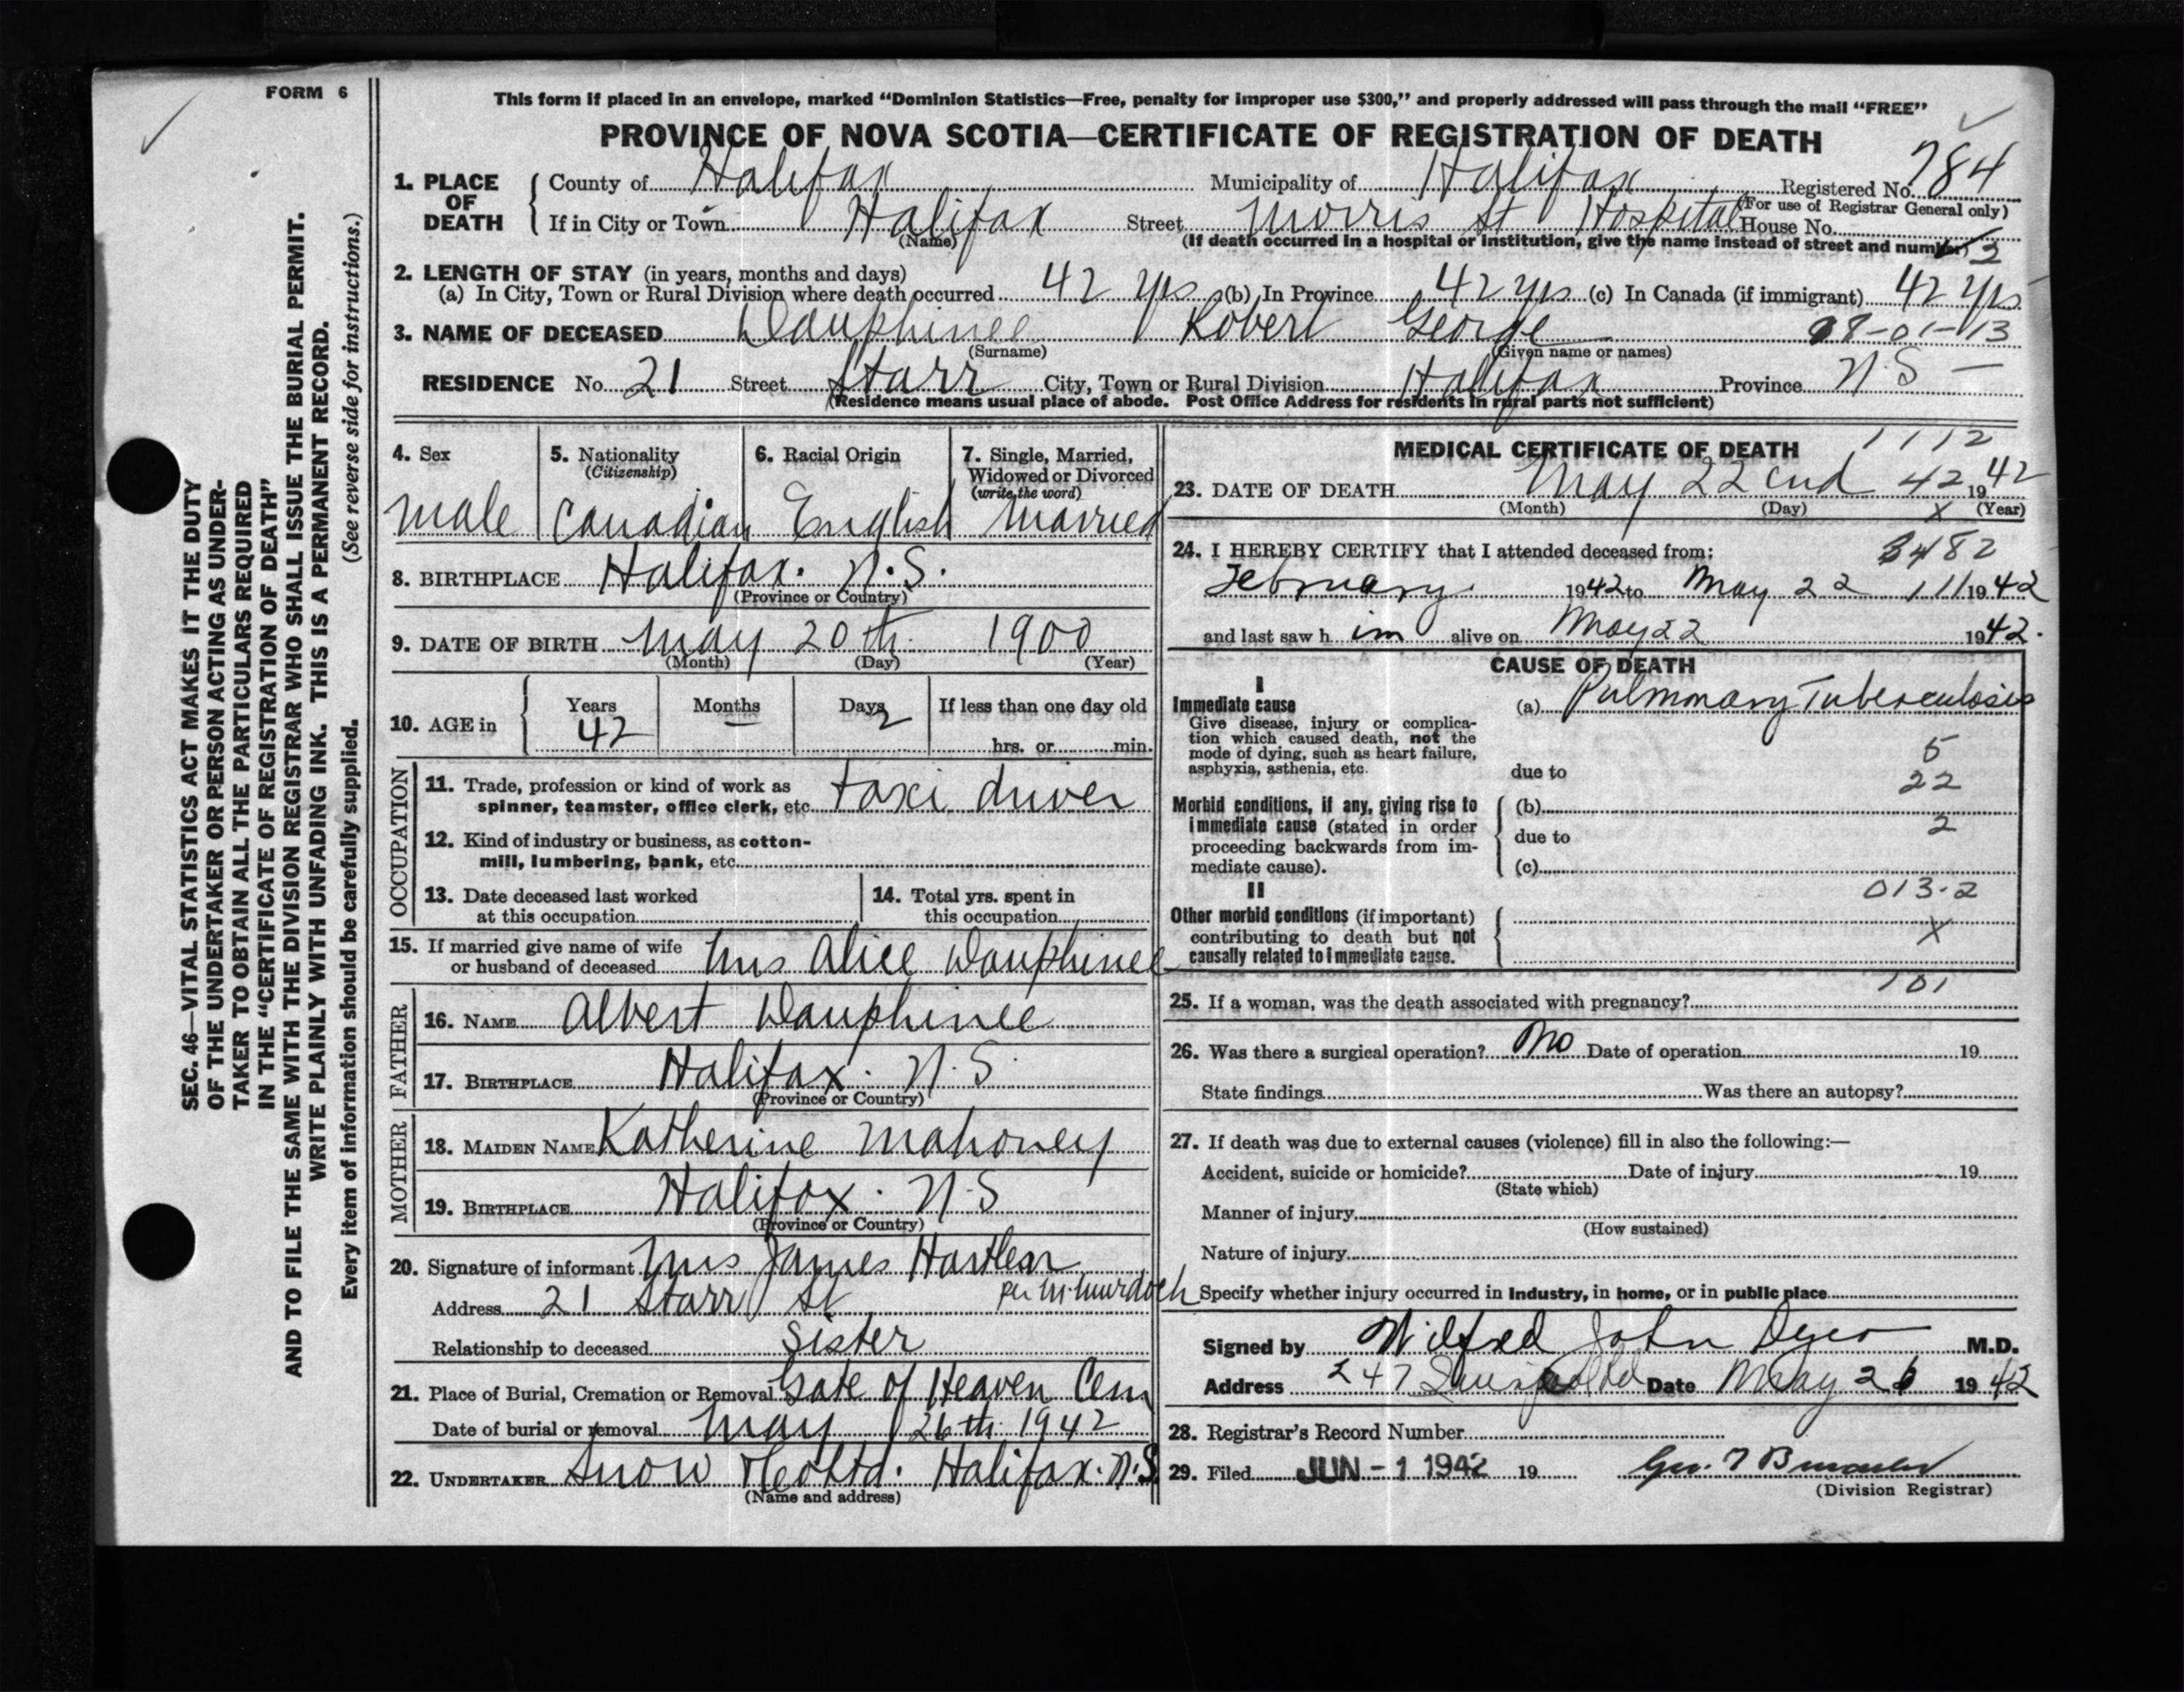 FORM 6
SEC. 46—VITAL STATISTICS ACT MAKES IT THE DUTY
OF THE UNDERTAKER OR PERSON ACTING AS UNDER-
TAKER TO OBTAIN ALL THE PARTICULARS REQUIRED
IN THE "CERTIFICATE OF REGISTRATION OF DEATH"
AND TO FILE THE SAME WITH THE DIVISION REGISTRAR WHO SHALL ISSUE THE BURIAL PERMIT.
WRITE PLAINLY WITH UNFADING INK. THIS IS A PERMANENT RECORD.
Every item of information should be carefully supplied. (See reverse side for instructions.)
This form if placed in an envelope, marked "Dominion Statistics—Free, penalty for improper use $300," and properly addressed will pass through the mail "FREE"
PROVINCE OF NOVA SCOTIA—CERTIFICATE OF REGISTRATION OF DEATH
1. PLACE OF DEATH
County of Halifax Municipality of Halifax Registered No. 784
(For use of Registrar General only)
If in City or Town Halifax Street Morris St Hospital House No.
(Name) (If death occurred in a hospital or institution, give the name instead of street and number) 2
2. LENGTH OF STAY (in years, months and days)
(a) In City, Town or Rural Division where death occurred 42 yrs (b) In Province 42 yrs (c) In Canada (if immigrant) 42 yrs
3. NAME OF DECEASED Dauphinee Robert George -01-13
(Surname) (Given name or names)
RESIDENCE No. 21 Street Starr City, Town or Rural Division Halifax Province N.S —
(Residence means usual place of abode. Post Office Address for residents in rural parts not sufficient)
4. Sex
male
5. Nationality
(Citizenship)
Canadian
6. Racial Origin
English
7. Single, Married,
Widowed or Divorced
(write the word)
Married
8. BIRTHPLACE Halifax. N.S.
(Province or Country)
9. DATE OF BIRTH May 20th. 1900
(Month) (Day) (Year)
10. AGE in
Years Months Days If less than one day old
42 — 2
hrs. or min.
OCCUPATION
11. Trade, profession or kind of work as
spinner, teamster, office clerk, etc. taxi driver
12. Kind of industry or business, as cotton-
mill, lumbering, bank, etc.
13. Date deceased last worked
at this occupation
14. Total yrs. spent in
this occupation
15. If married give name of wife
or husband of deceased Mrs Alice Dauphinee
FATHER
16. NAME Albert Dauphinee
17. BIRTHPLACE Halifax. N.S.
(Province or Country)
MOTHER
18. MAIDEN NAME Katherine Mahoney
19. BIRTHPLACE Halifax. N.S
(Province or Country)
20. Signature of informant Mrs James Hartlen
per M. Murdoch
Address 21 Starr St
Relationship to deceased Sister
21. Place of Burial, Cremation or Removal Gate of Heaven Cem
Date of burial or removal May 26th 1942
22. UNDERTAKER Snow & Co Ltd. Halifax. N.S
(Name and address)
MEDICAL CERTIFICATE OF DEATH
1112
23. DATE OF DEATH May 22end 42 1942
(Month) (Day) X (Year)
24. I HEREBY CERTIFY that I attended deceased from:
3482
February 1942 to May 22 111 1942
and last saw him alive on May 22 1942.
CAUSE OF DEATH
I
Immediate cause
Give disease, injury or complica-
tion which caused death, not the
mode of dying, such as heart failure,
asphyxia, asthenia, etc.
(a) Pulmonary Tuberculosis
5
due to
22
Morbid conditions, if any, giving rise to
immediate cause (stated in order
proceeding backwards from im-
mediate cause).
(b)
2
due to
(c)
013-2
II
Other morbid conditions (if important)
contributing to death but not
causally related to immediate cause.
X
101
25. If a woman, was the death associated with pregnancy?
26. Was there a surgical operation? No Date of operation 19
State findings Was there an autopsy?
27. If death was due to external causes (violence) fill in also the following:—
Accident, suicide or homicide? Date of injury 19
(State which)
Manner of injury
(How sustained)
Nature of injury
Specify whether injury occurred in Industry, in home, or in public place
Signed by Wilfred John Dyer M.D.
Address 247 Date May 26 1942
28. Registrar's Record Number
29. Filed JUN -1 1942 19
(Division Registrar)